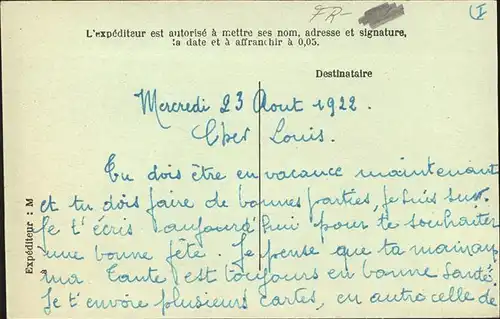 FR-
I
L'expéditeur est autorisé à mettre ses nom, adresse et signature,
la date et à affranchir à 0,05.
Destinataire
Expéditeur : M
Mercredi 23 Aout 1922.
Cher Louis.
Tu dois être en vacance maintenant
et tu dois faire de bonnes parties, je suis sur.
Je t'écris aujourd'hui pour te souhaiter
une bonne fête. Je pense que ta maman
ma Tante est toujours en bonne santé.
Je t'envoie plusieurs cartes, en autre celle de